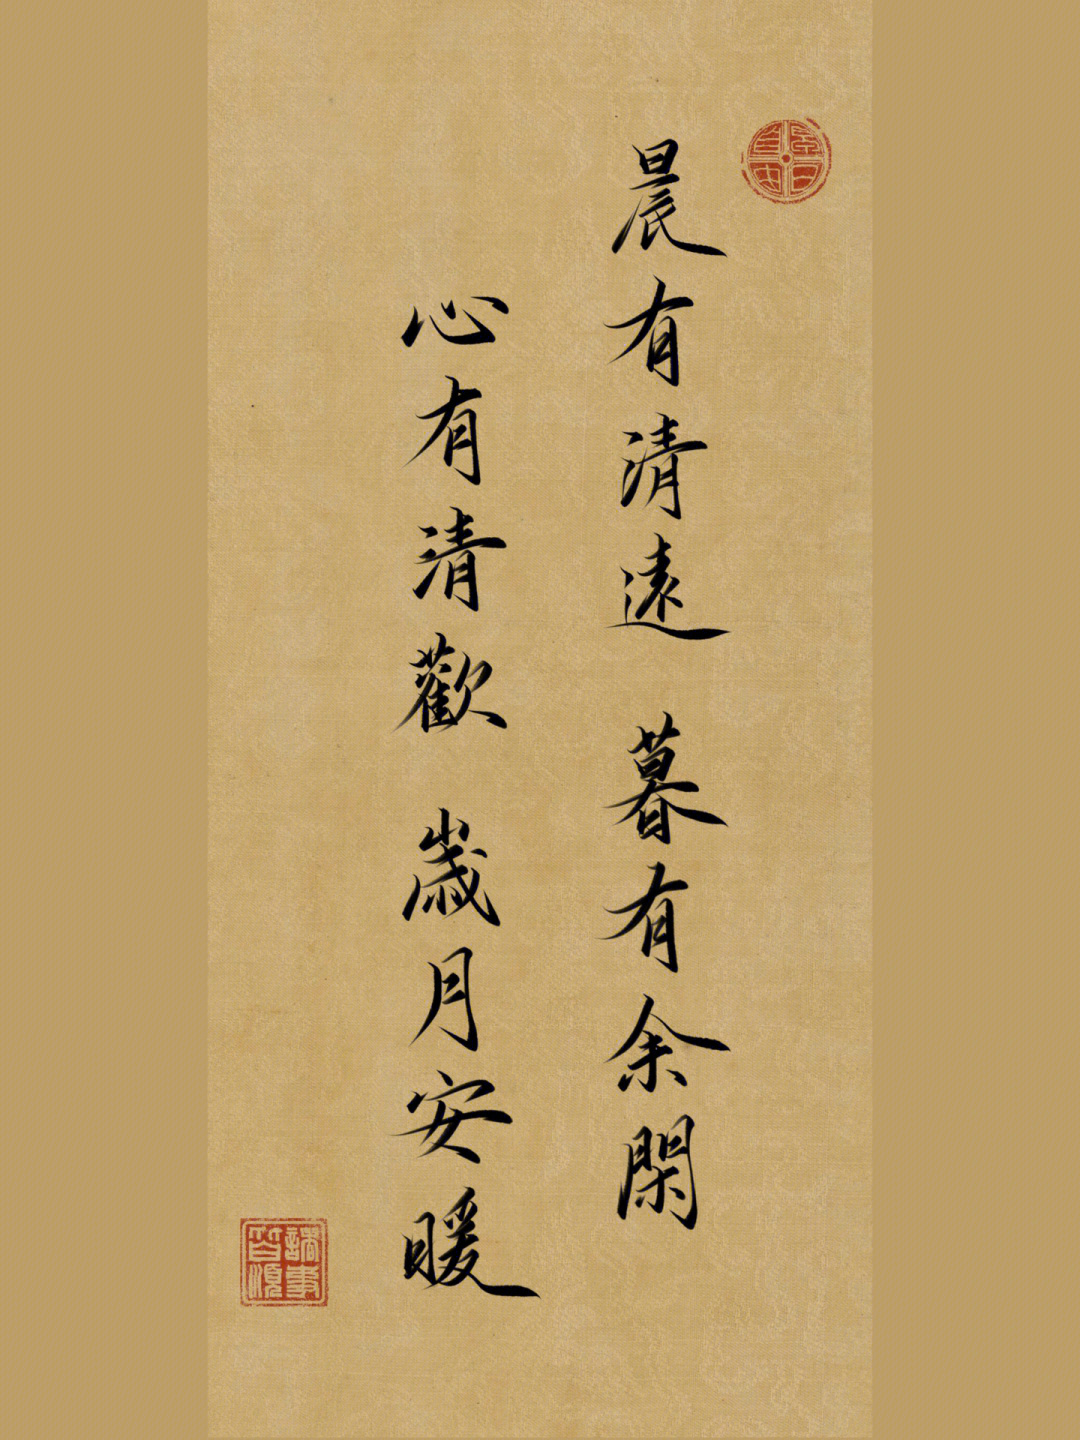 晨有清遠 暮有余閑
心有清歡 歲月安暖
諸事皆順